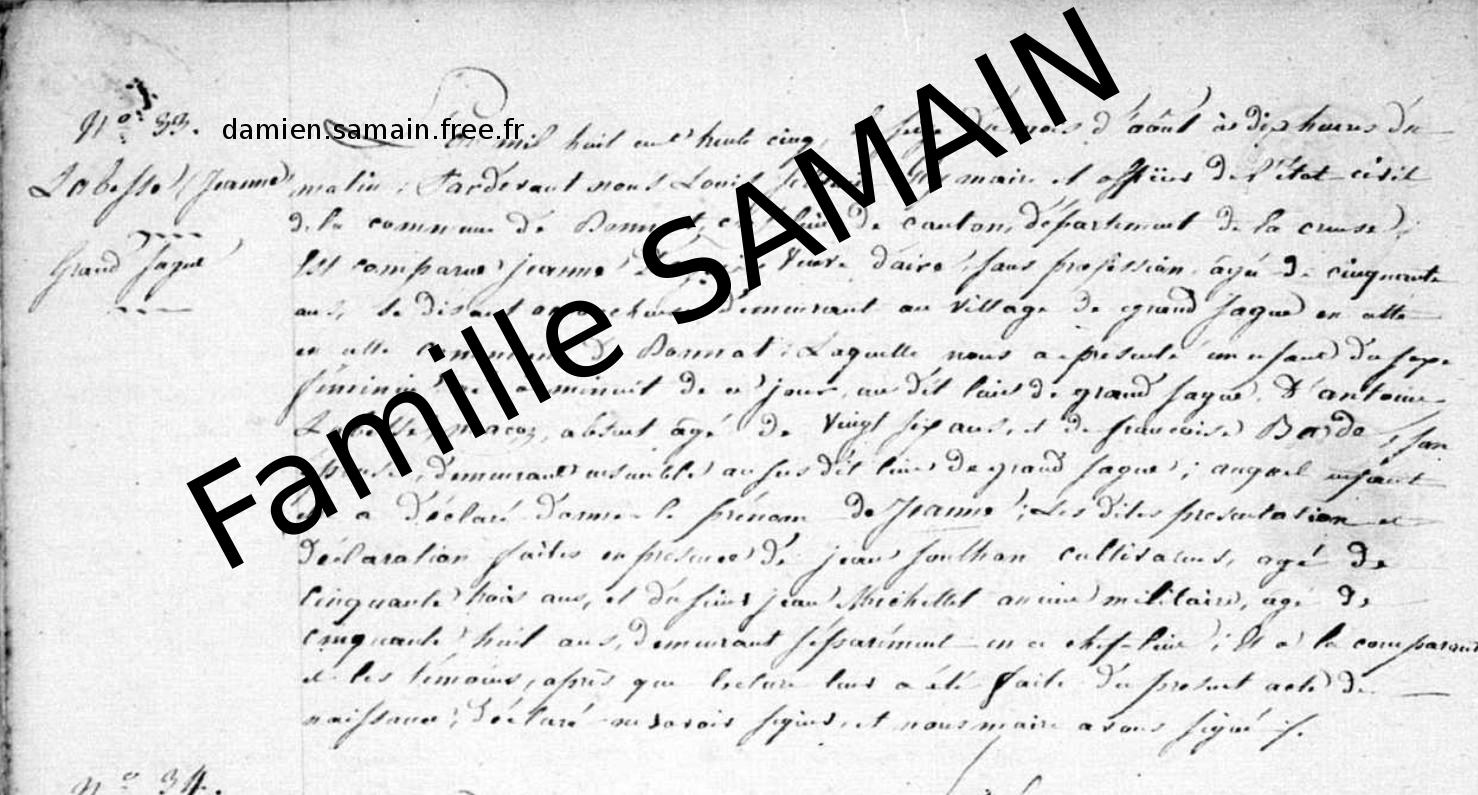 N.° 33.
damien.samain.free.fr
Labesse (Jeanne)
Grand Jague
Famille SAMAIN
L'an mil huit cent trente cinq, le seize du mois d'août à dix heures du
matin ; Pardevant nous Louis maire et officier de l'état civil
de la commune de Bonnat, chef lieu de canton, département de la creuse ;
Est comparue jeanne veuve daire, sans profession, agée de cinquante
ans, se disant demeurant au village de grand Jague en
en cette commune de Bonnat ; Laquelle nous a présenté un enfant du sexe
féminin né a minuit de ce jour, au dit lieu de grand Jague, D'antoine
Labesse, maçon, absent âgé de vingt six ans, et de françoise Barde, son
épouse, demeurant ensemble au sus dit lieu de grand Jague ; auquel enfant
elle a déclaré donner le prénom de Jeanne ; Les dites présentation et
déclaration faites en présence de jean Joulhan cultivateur, agé de
cinquante trois ans, et du sieur jean Michellet ancien militaire, agé de
cinquante huit ans, demeurant séparément en ce chef-lieu ; Et a la comparante
et les témoins, après que lecture leur a été faite du présent acte de
naissance, déclaré ne savoir signer, et nous maire avons signé ./.
N.° 34.